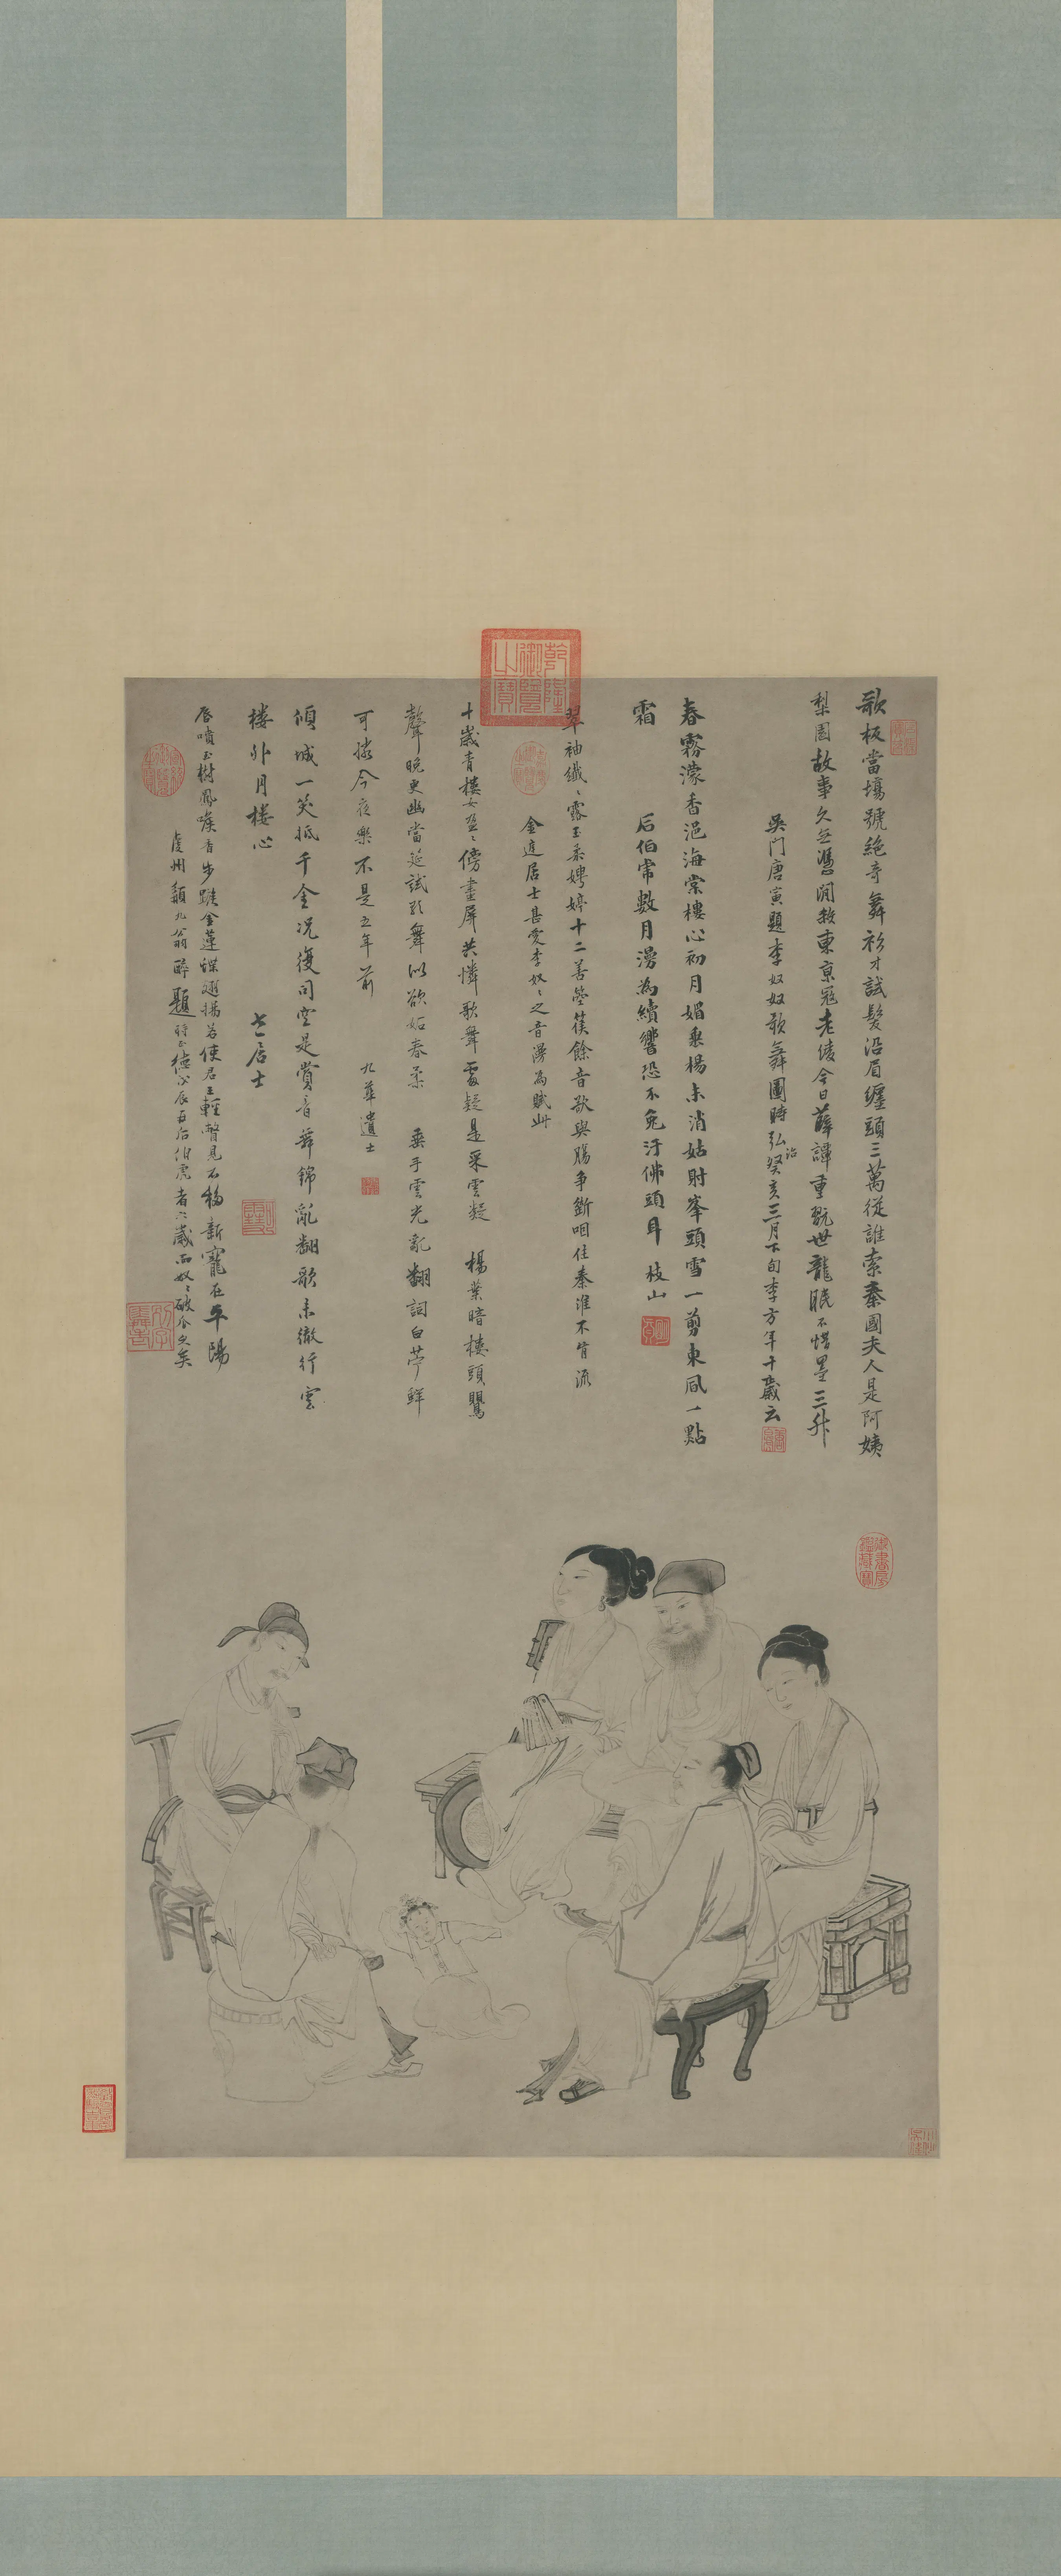 歌板當場號絕奇舞衫才試髮沿眉纏頭三萬從誰索秦國夫人是阿姨
梨園故事久無憑閒殺東京寇老綾今日薛譚重翫世龍眠不惜墨三升
吳門唐寅題李奴奴歌舞圖時弘治癸亥三月下旬李方年十歲云
春霧濛香浥海棠樓心初月媚垂楊未消姑射峯頭雪一剪東風一點
霜
后伯常數月湯為續響恐不免汙佛頭耳 枝山
翠袖纖〻露玉柔娉婷十二善箜篌餘音欲與腸爭斷咽住秦淮不肯流
金逵居士甚愛李奴〻之音漫為賦此
十歲青樓女盈〻傍畫屏共憐歌舞處疑是采雲凝 楊葉暗樓頭鸎
聲晚更幽當筵試引舞似欲妬春柔 垂手雲光亂翻詞白苧鮮
可憐今夜樂不是五年前 九華遺士
傾城一笑抵千金況復司空是賞音舞錦亂翻歌未徹行雲
樓外月樓心 七一居士
唇噴玉樹鳳喉香步蹴金蓮蝶翅揚若使君王輕瞥見不移新寵在平陽
虔州䫂九翁醉題時正德戊辰
乾隆御覽之寶